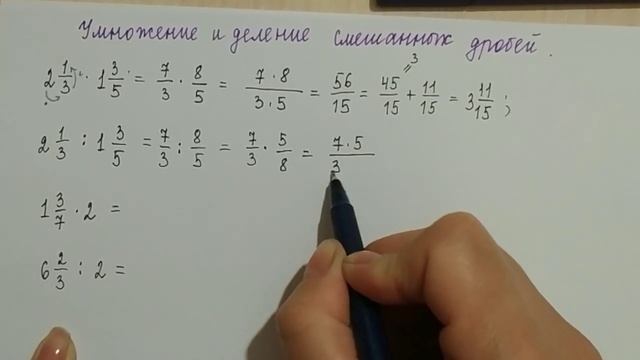 Умножение и деление смешанных дробей.
2 1/3 · 1 3/5 = 7/3 · 8/5 = 7·8/3·5 = 56/15 = 45/15 + 11/15 = 3 11/15 ;
2 1/3 : 1 3/5 = 7/3 : 8/5 = 7/3 · 5/8 = 7·5/3
1 3/7 · 2 =
6 2/3 : 2 =